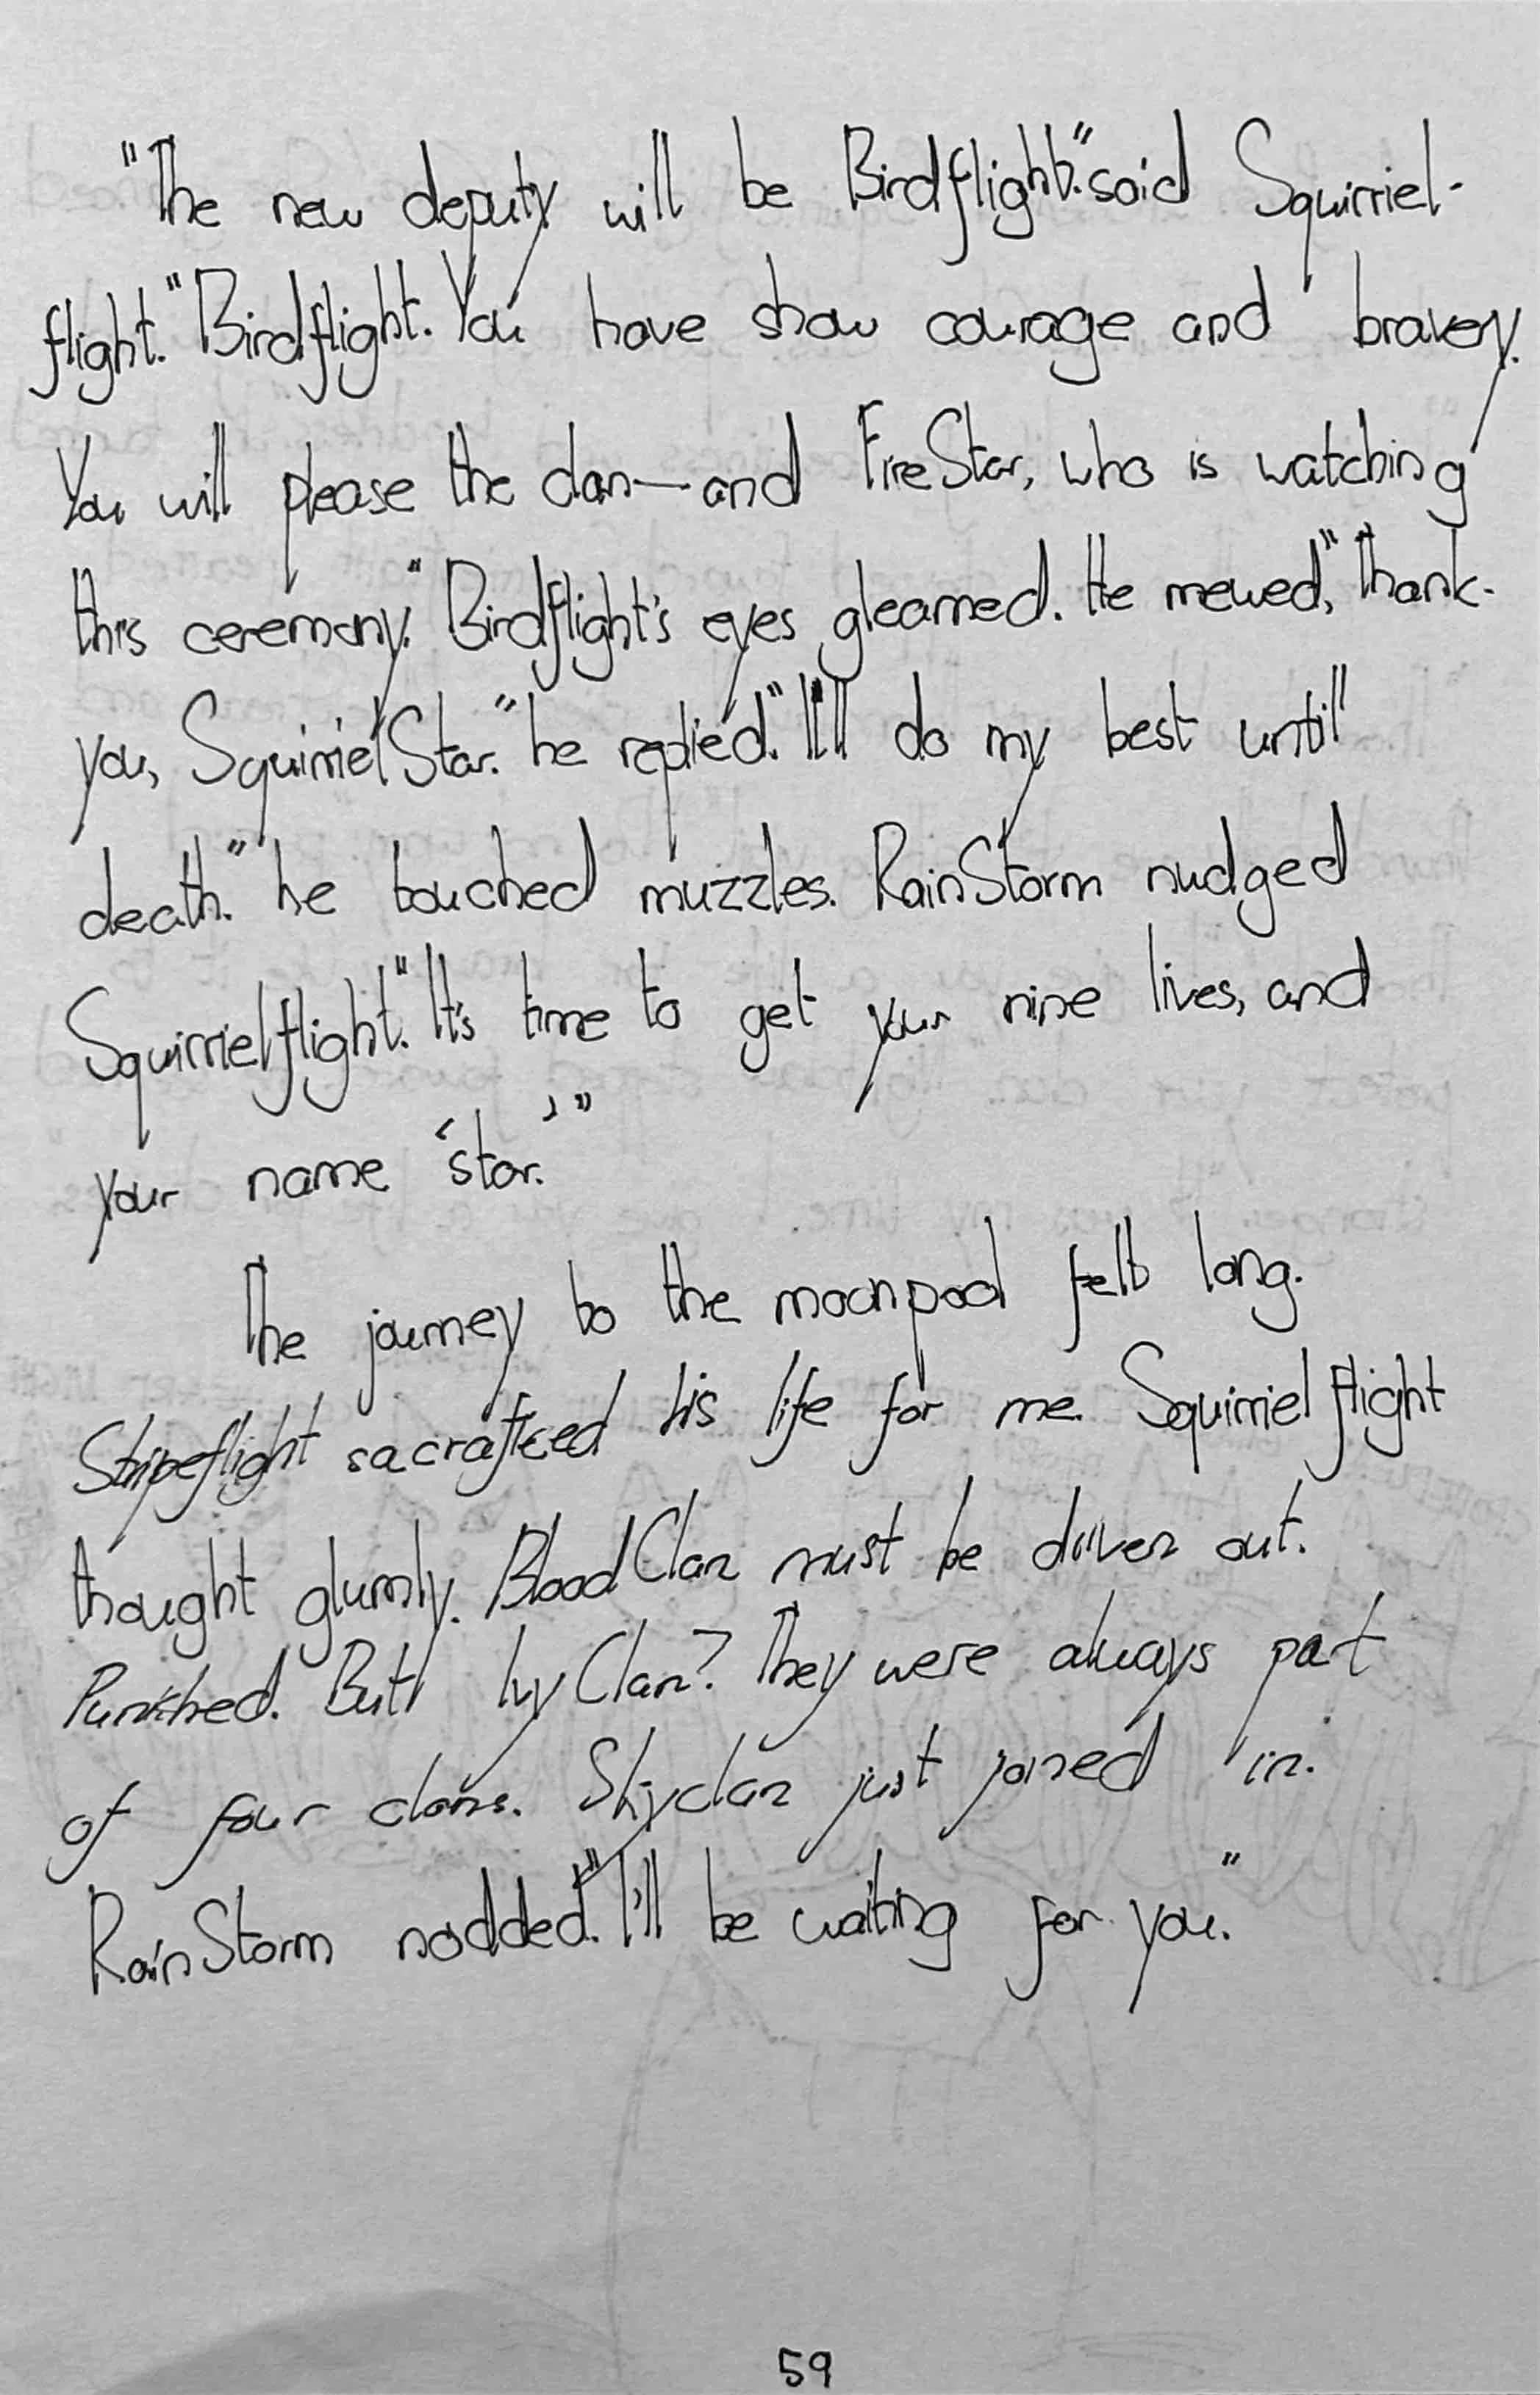 "The new deputy will be Birdflight." said Squirriel-
flight. "Birdflight. You have show courage and bravery.
You will please the clan—and FireStar, who is watching
this ceremony." Birdflight's eyes gleamed. He mewed, "Thank-
you, SquirrielStar." he replied. "I'll do my best until
death." he touched muzzles. RainStorm nudged
Squirrielflight. "It's time to get your nine lives, and
your name 'star.'"
The journey to the moonpool felt long.
Stripeflight sacrafficed his life for me. Squirrielflight
thought glumly. BloodClan must be driven out.
Punished. But IvyClan? They were always part
of four clans. Skyclan just joined in.
RainStorm nodded. "I'll be waiting for you."
59